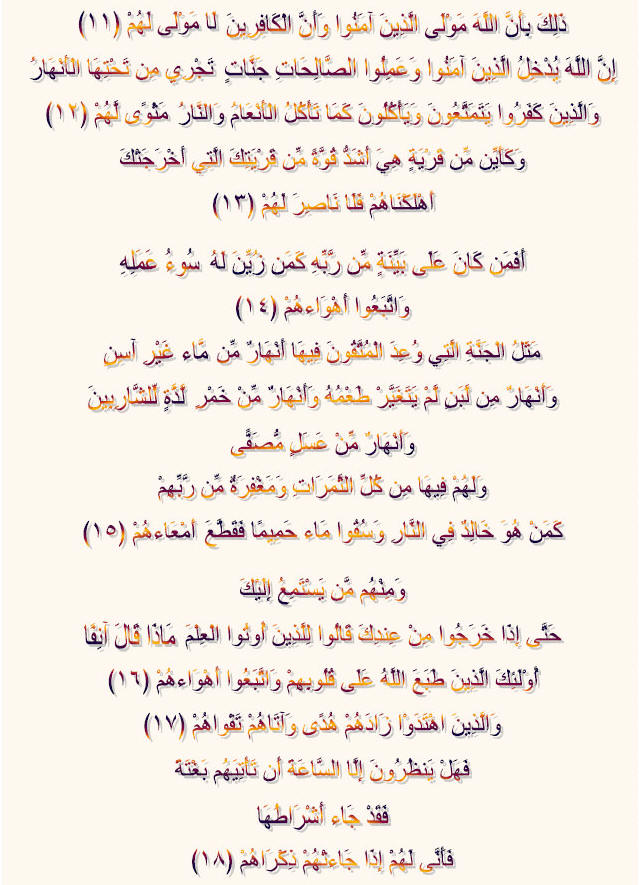 ذَلِكَ بِأَنَّ اللَّهَ مَوْلَى الَّذِينَ آمَنُوا وَأَنَّ الْكَافِرِينَ لَا مَوْلَى لَهُمْ (١١)
إِنَّ اللَّهَ يُدْخِلُ الَّذِينَ آمَنُوا وَعَمِلُوا الصَّالِحَاتِ جَنَّاتٍ تَجْرِي مِن تَحْتِهَا الْأَنْهَارُ
وَالَّذِينَ كَفَرُوا يَتَمَتَّعُونَ وَيَأْكُلُونَ كَمَا تَأْكُلُ الْأَنْعَامُ وَالنَّارُ مَثْوًى لَّهُمْ (١٢)
وَكَأَيِّن مِّن قَرْيَةٍ هِيَ أَشَدُّ قُوَّةً مِّن قَرْيَتِكَ الَّتِي أَخْرَجَتْكَ
أَهْلَكْنَاهُمْ فَلَا نَاصِرَ لَهُمْ (١٣)
أَفَمَن كَانَ عَلَى بَيِّنَةٍ مِّن رَّبِّهِ كَمَن زُيِّنَ لَهُ سُوءُ عَمَلِهِ
وَاتَّبَعُوا أَهْوَاءهُمْ (١٤)
مَثَلُ الْجَنَّةِ الَّتِي وُعِدَ الْمُتَّقُونَ فِيهَا أَنْهَارٌ مِّن مَّاء غَيْرِ آسِنٍ
وَأَنْهَارٌ مِن لَّبَنٍ لَّمْ يَتَغَيَّرْ طَعْمُهُ وَأَنْهَارٌ مِّنْ خَمْرٍ لَّذَّةٍ لِّلشَّارِبِينَ
وَأَنْهَارٌ مِّنْ عَسَلٍ مُّصَفًّى
وَلَهُمْ فِيهَا مِن كُلِّ الثَّمَرَاتِ وَمَغْفِرَةٌ مِّن رَّبِّهِمْ
كَمَنْ هُوَ خَالِدٌ فِي النَّارِ وَسُقُوا مَاء حَمِيمًا فَقَطَّعَ أَمْعَاءهُمْ (١٥)
وَمِنْهُم مَّن يَسْتَمِعُ إِلَيْكَ
حَتَّى إِذَا خَرَجُوا مِنْ عِندِكَ قَالُوا لِلَّذِينَ أُوتُوا الْعِلْمَ مَاذَا قَالَ آنِفًا
أُوْلَئِكَ الَّذِينَ طَبَعَ اللَّهُ عَلَى قُلُوبِهِمْ وَاتَّبَعُوا أَهْوَاءهُمْ (١٦)
وَالَّذِينَ اهْتَدَوْا زَادَهُمْ هُدًى وَآتَاهُمْ تَقْواهُمْ (١٧)
فَهَلْ يَنظُرُونَ إِلَّا السَّاعَةَ أَن تَأْتِيَهُم بَغْتَةً
فَقَدْ جَاء أَشْرَاطُهَا
فَأَنَّى لَهُمْ إِذَا جَاءتْهُمْ ذِكْرَاهُمْ (١٨)